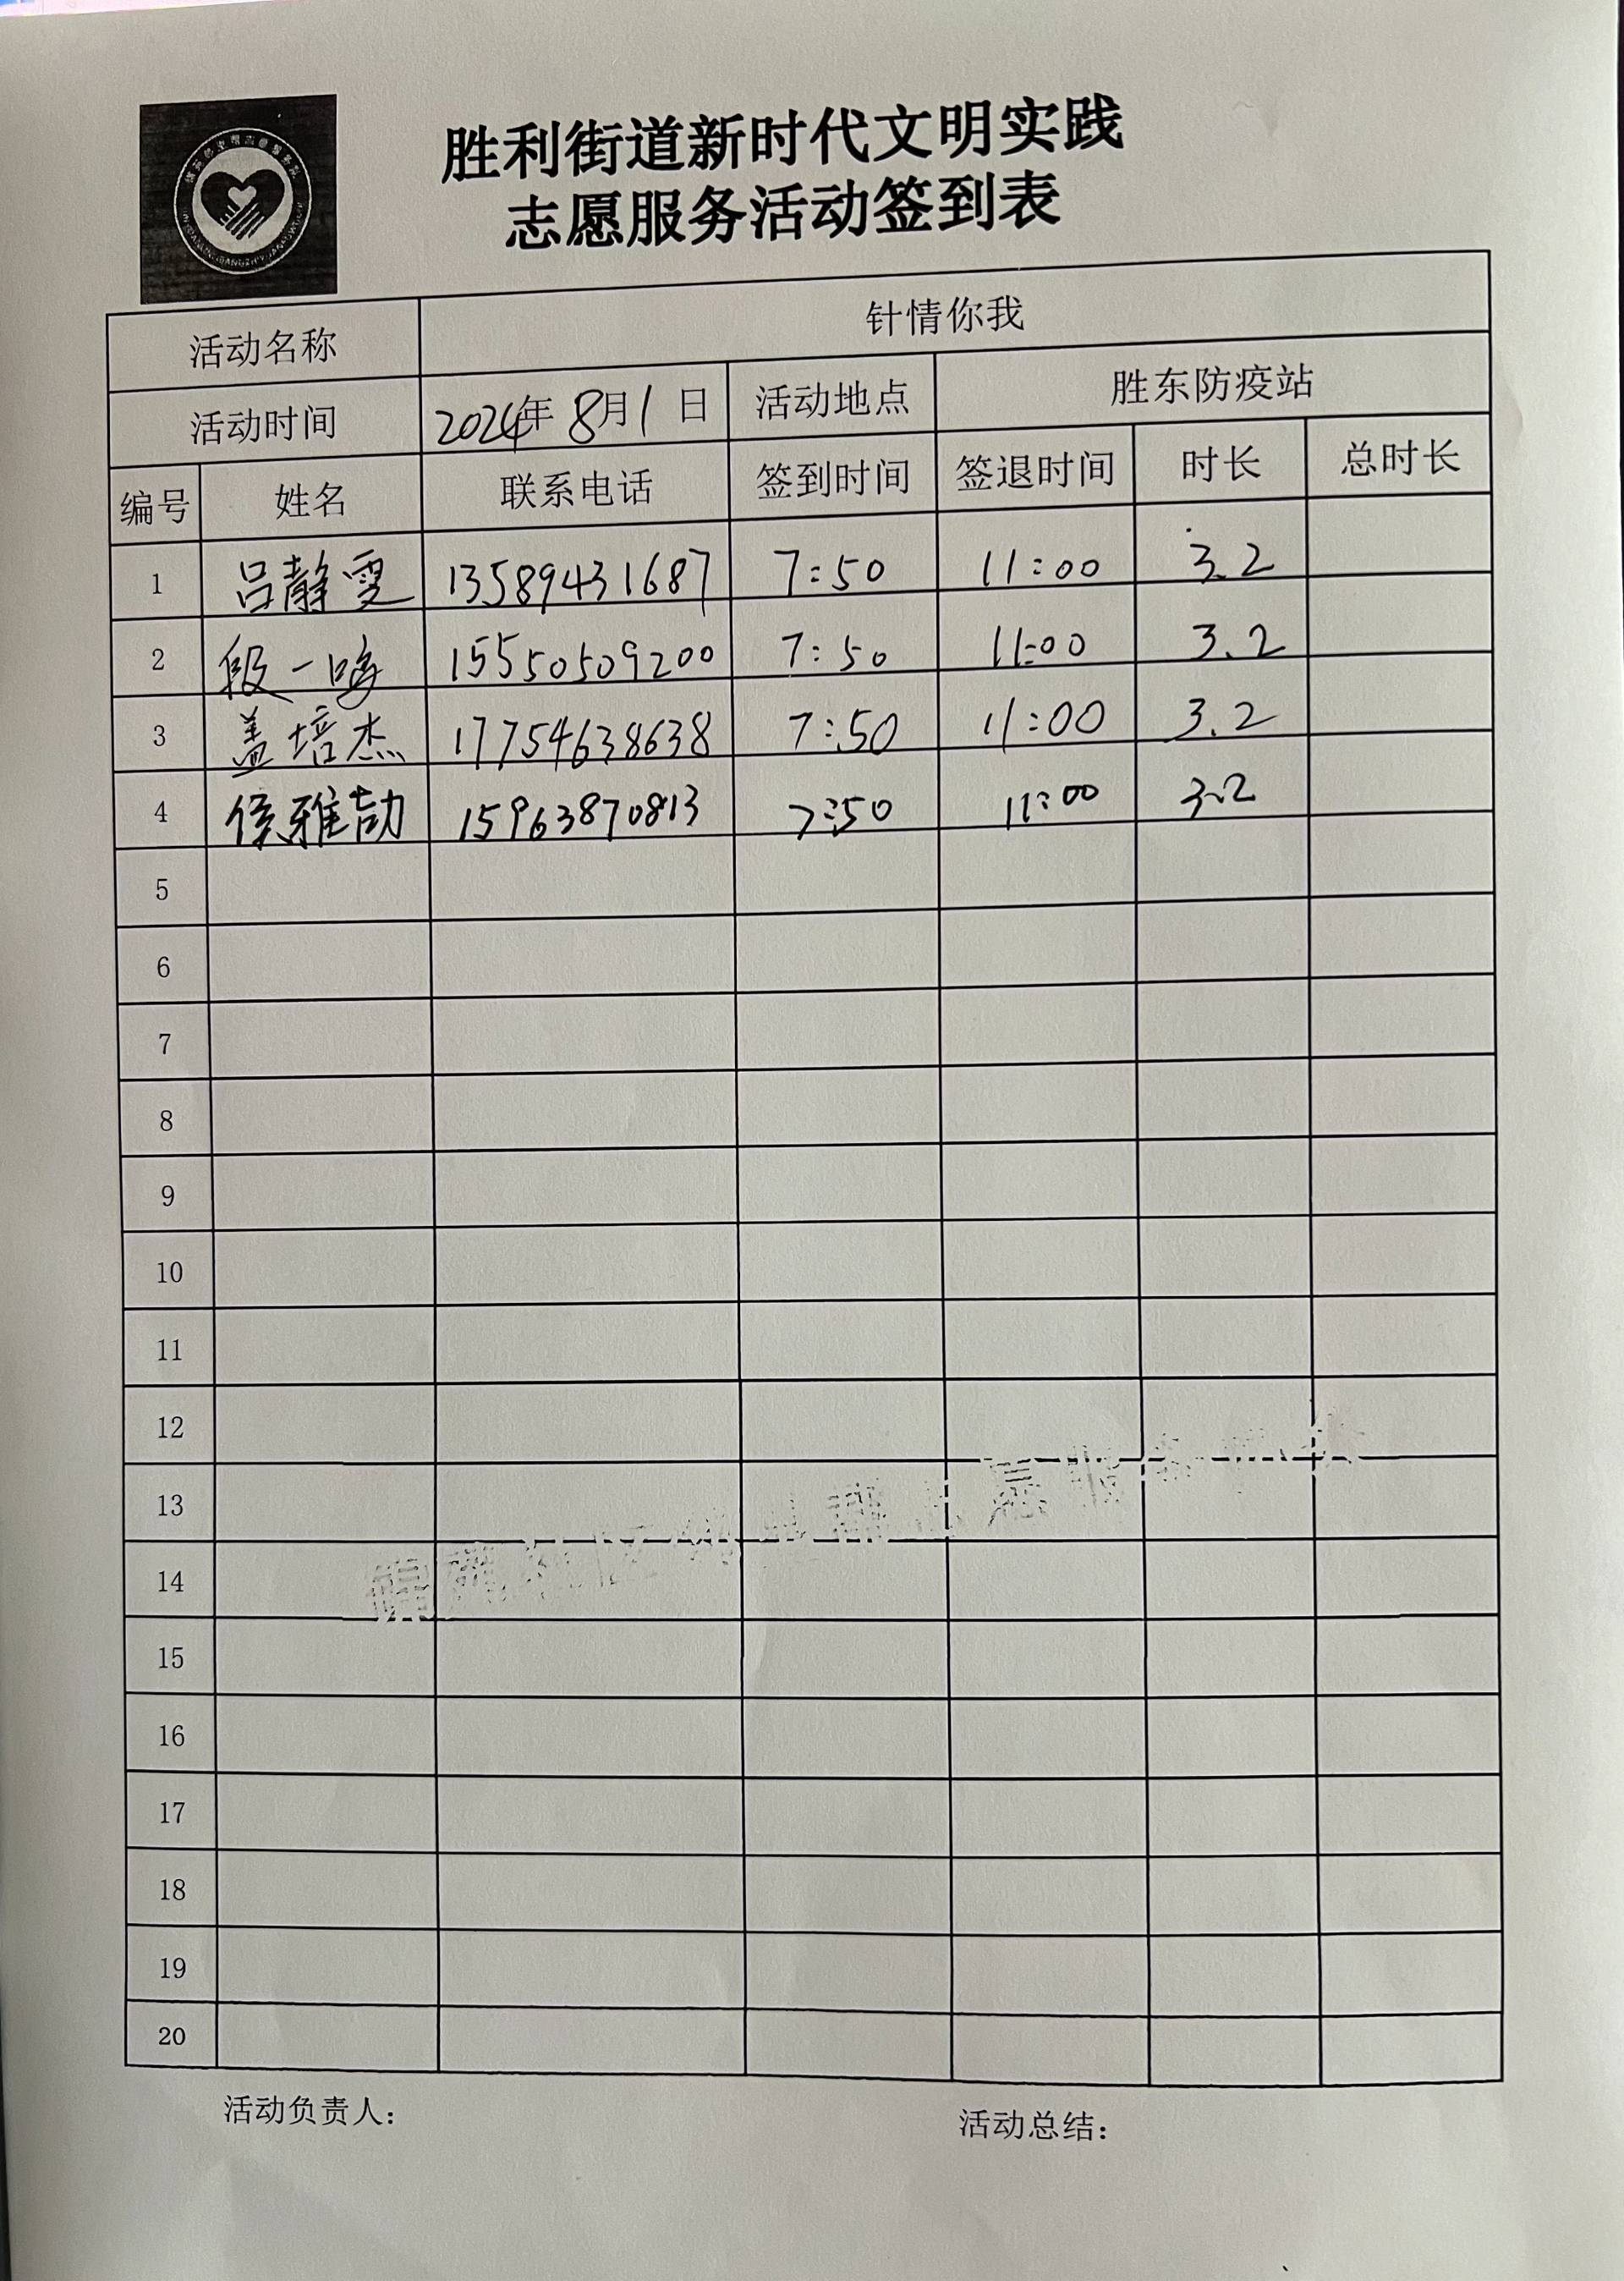 胜利街道新时代文明实践
志愿服务活动签到表
活动名称 针情你我
活动时间 2024年8月1日 活动地点 胜东防疫站
编号 姓名 联系电话 签到时间 签退时间 时长 总时长
1 吕静雯 13589431687 7:50 11:00 3.2
2 段一 15550509200 7:50 11:00 3.2
3 盖培杰 17754638638 7:50 11:00 3.2
4 侯雅喆 15963870813 7:50 11:00 3.2
5
6
7
8
9
10
11
12
13
14
15
16
17
18
19
20
活动负责人: 活动总结: